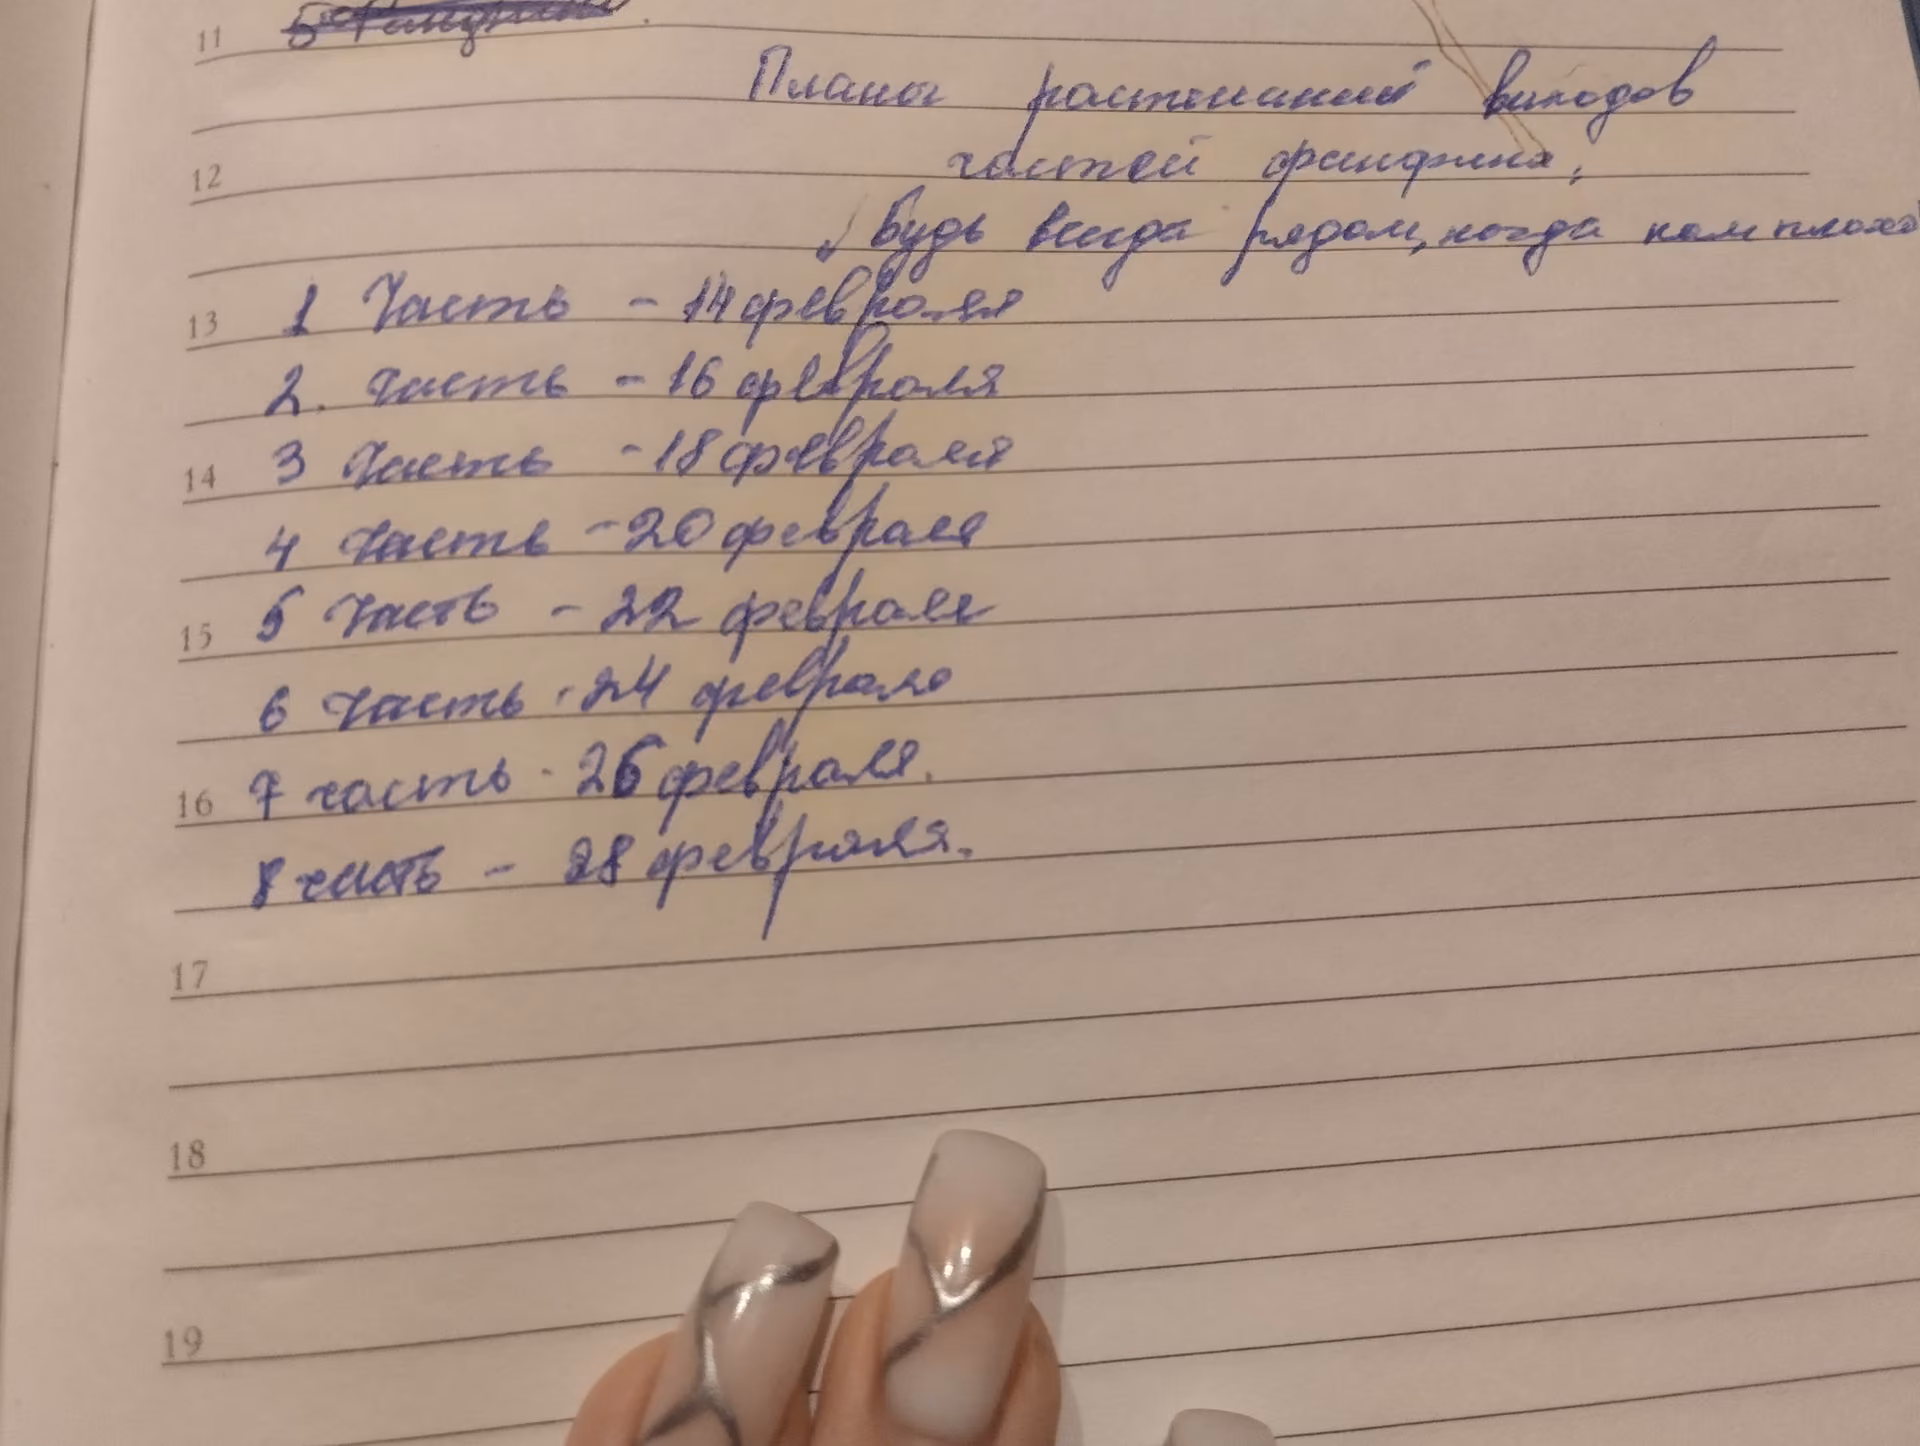 11
Планы растисаний выходов
12 частей фанфика,
"Будь всегда рядом, когда нам плохо"
13 1 Часть - 14 февраля
2. Часть - 16 февраля
14 3 Часть - 18 февраля
4 Часть - 20 февраля
15 5 Часть - 22 февраля
6 Часть - 24 февраля
16 7 часть - 26 февраля.
8 часть - 28 февраля.
17
18
19